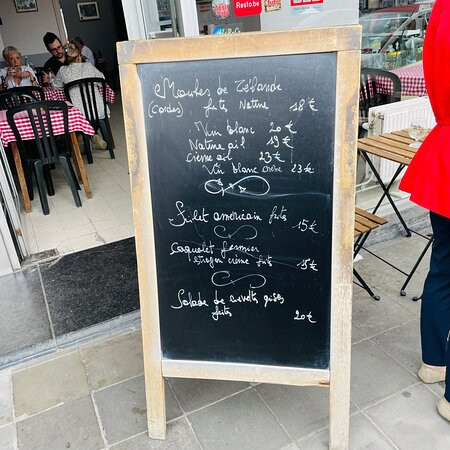 Resto.be
Moules de Zélande
(cordes) frits Nature 18€
Vin blanc 20€
Nature ail 19€
Crème ail 23€
Vin blanc crème 23€
Filet américain frits
15€
Coquelet fermier
estragon crème frits 15€
Salade de crevettes grises
frites 20€